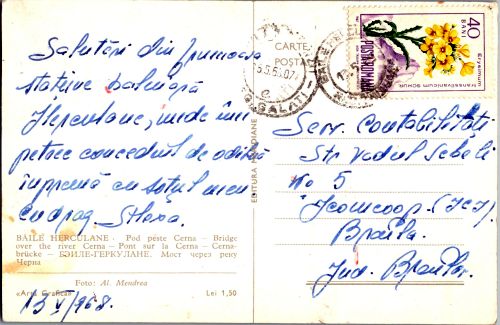 Salutări din frumoasa
stațiune balneară
Herculane, unde îmi
petrec concediul de odihnă
împreună cu soțul meu
Cu drag,
BĂILE HERCULANE - Pod peste Cerna - Bridge
over the river Cerna - Pont sur la Cerna - Cerna-
brücke - БЭИЛЕ-ГЕРКУЛАНЕ. Мост через реку
Черна
Foto: Al. Mendrea
«Arta Grafică» Lei 1,50
15 V/968.
EDITURA MERIDIANE
CARTE
POȘTA
GALAȚI
POSTA ROMANA
40
BANI
Erysimum
transsilvanicum SCHUR
Serv. Contabilitate
Str
No 5
Icomcoop. (ICJ)
Brăila
Jud. Brăila.